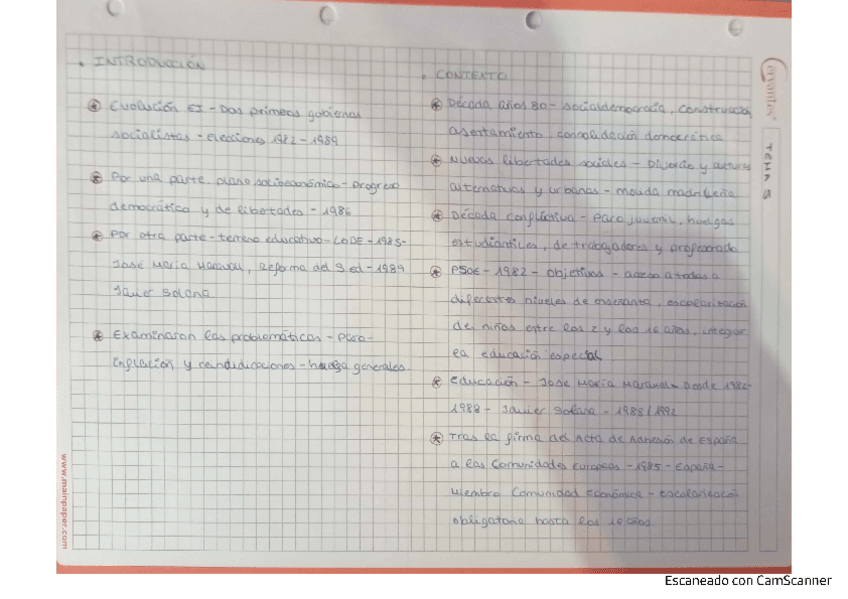 • INTRODUCCIÓN
Evolución EI - Dos primeros gobiernos
socialistas - elecciones 1982 - 1989
Por una parte, plano socioeconómico - progreso
democrático y de libertades - 1986
Por otra parte - terreno educativo - LODE - 1985 -
José María Maravall, Reforma del S.ed - 1989
Javier Solana
Examinaron las problemáticas - paro -
inflación y reindivicaciones - huelga generales.
• CONTEXTO
Década años 80 - socialdemocracia, construcción,
asentamiento, consolidación democrática
Nuevas libertades sociales - Divorcio y culturas
alternativas y urbanas - movida madrileña
Década conflictiva - Paro juvenil, huelgas
estudiantiles, de trabajadores y profesorado
PSOE - 1982 - objetivos - acceso a todas a
diferentes niveles de enseñanza, escolarización
de niños entre los 2 y los 16 años, integrar
la educación especial
Educación - José María Maravall - Desde 1982 -
1988 - Javier Solana - 1988/1992
Tras la firma del Acta de Adhesión de España
a las Comunidades Europeas - 1985 - España -
miembro Comunidad Económica - escolarización
obligatoria hasta los 16 años
TEMA 5
www.mainpaper.com
Escaneado con CamScanner